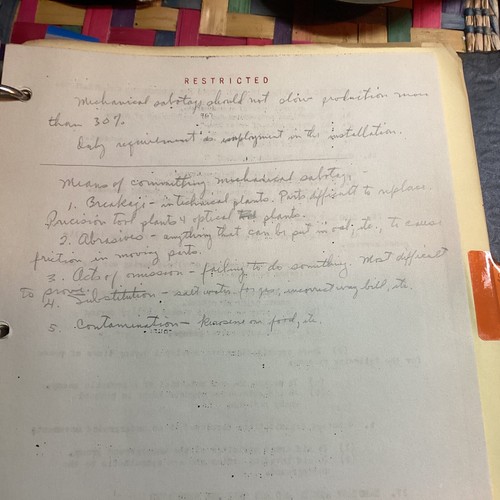 RESTRICTED
Mechanical sabotage should not slow production more
than 30%
Only requirement is employment in the installation.
Means of committing mechanical sabotage -
1. Breakage - in technical plants. Parts difficult to replace.
Precision tool plants & optical plants.
2. Abrasives - anything that can be put in oil, etc., to cause
friction in moving parts.
3. Acts of omission - failing to do something. Most difficult
to prove.
4. Substitution - salt water for gas, incorrect way bill, etc.
5. Contamination - Kerosene on food, etc.